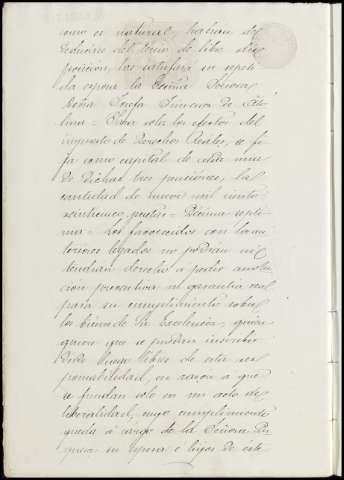 como es natural, habran de
deducirse del tercio de libre dis-
posición, las satisfará su repeti-
da esposa la Exma Señora
Doña Josefa Jimenez de
= Para solo los efectos del
impuesto de Derechos Reales, se fi-
ja como capital de cada una
de dichas tres pensiones, la
cantidad de nueve mil ciento
veintinueve pesetas = Décima septi-
ma = Los favorecidos con los an-
teriores legados no podran ni
tendran derecho a pedir anota-
ción preventiva ni garantia real
para su cumplimiento sobre
los bienes de Su Excelencia, quien
quiere que se puedan inscribir
desde luego libres de esta res-
ponsabilidad, en razon a que
se fundan solo en un acto de
liberalidad, cuyo cumplimiento
queda á cargo de la Señora Du-
quesa su esposa e hijos de este